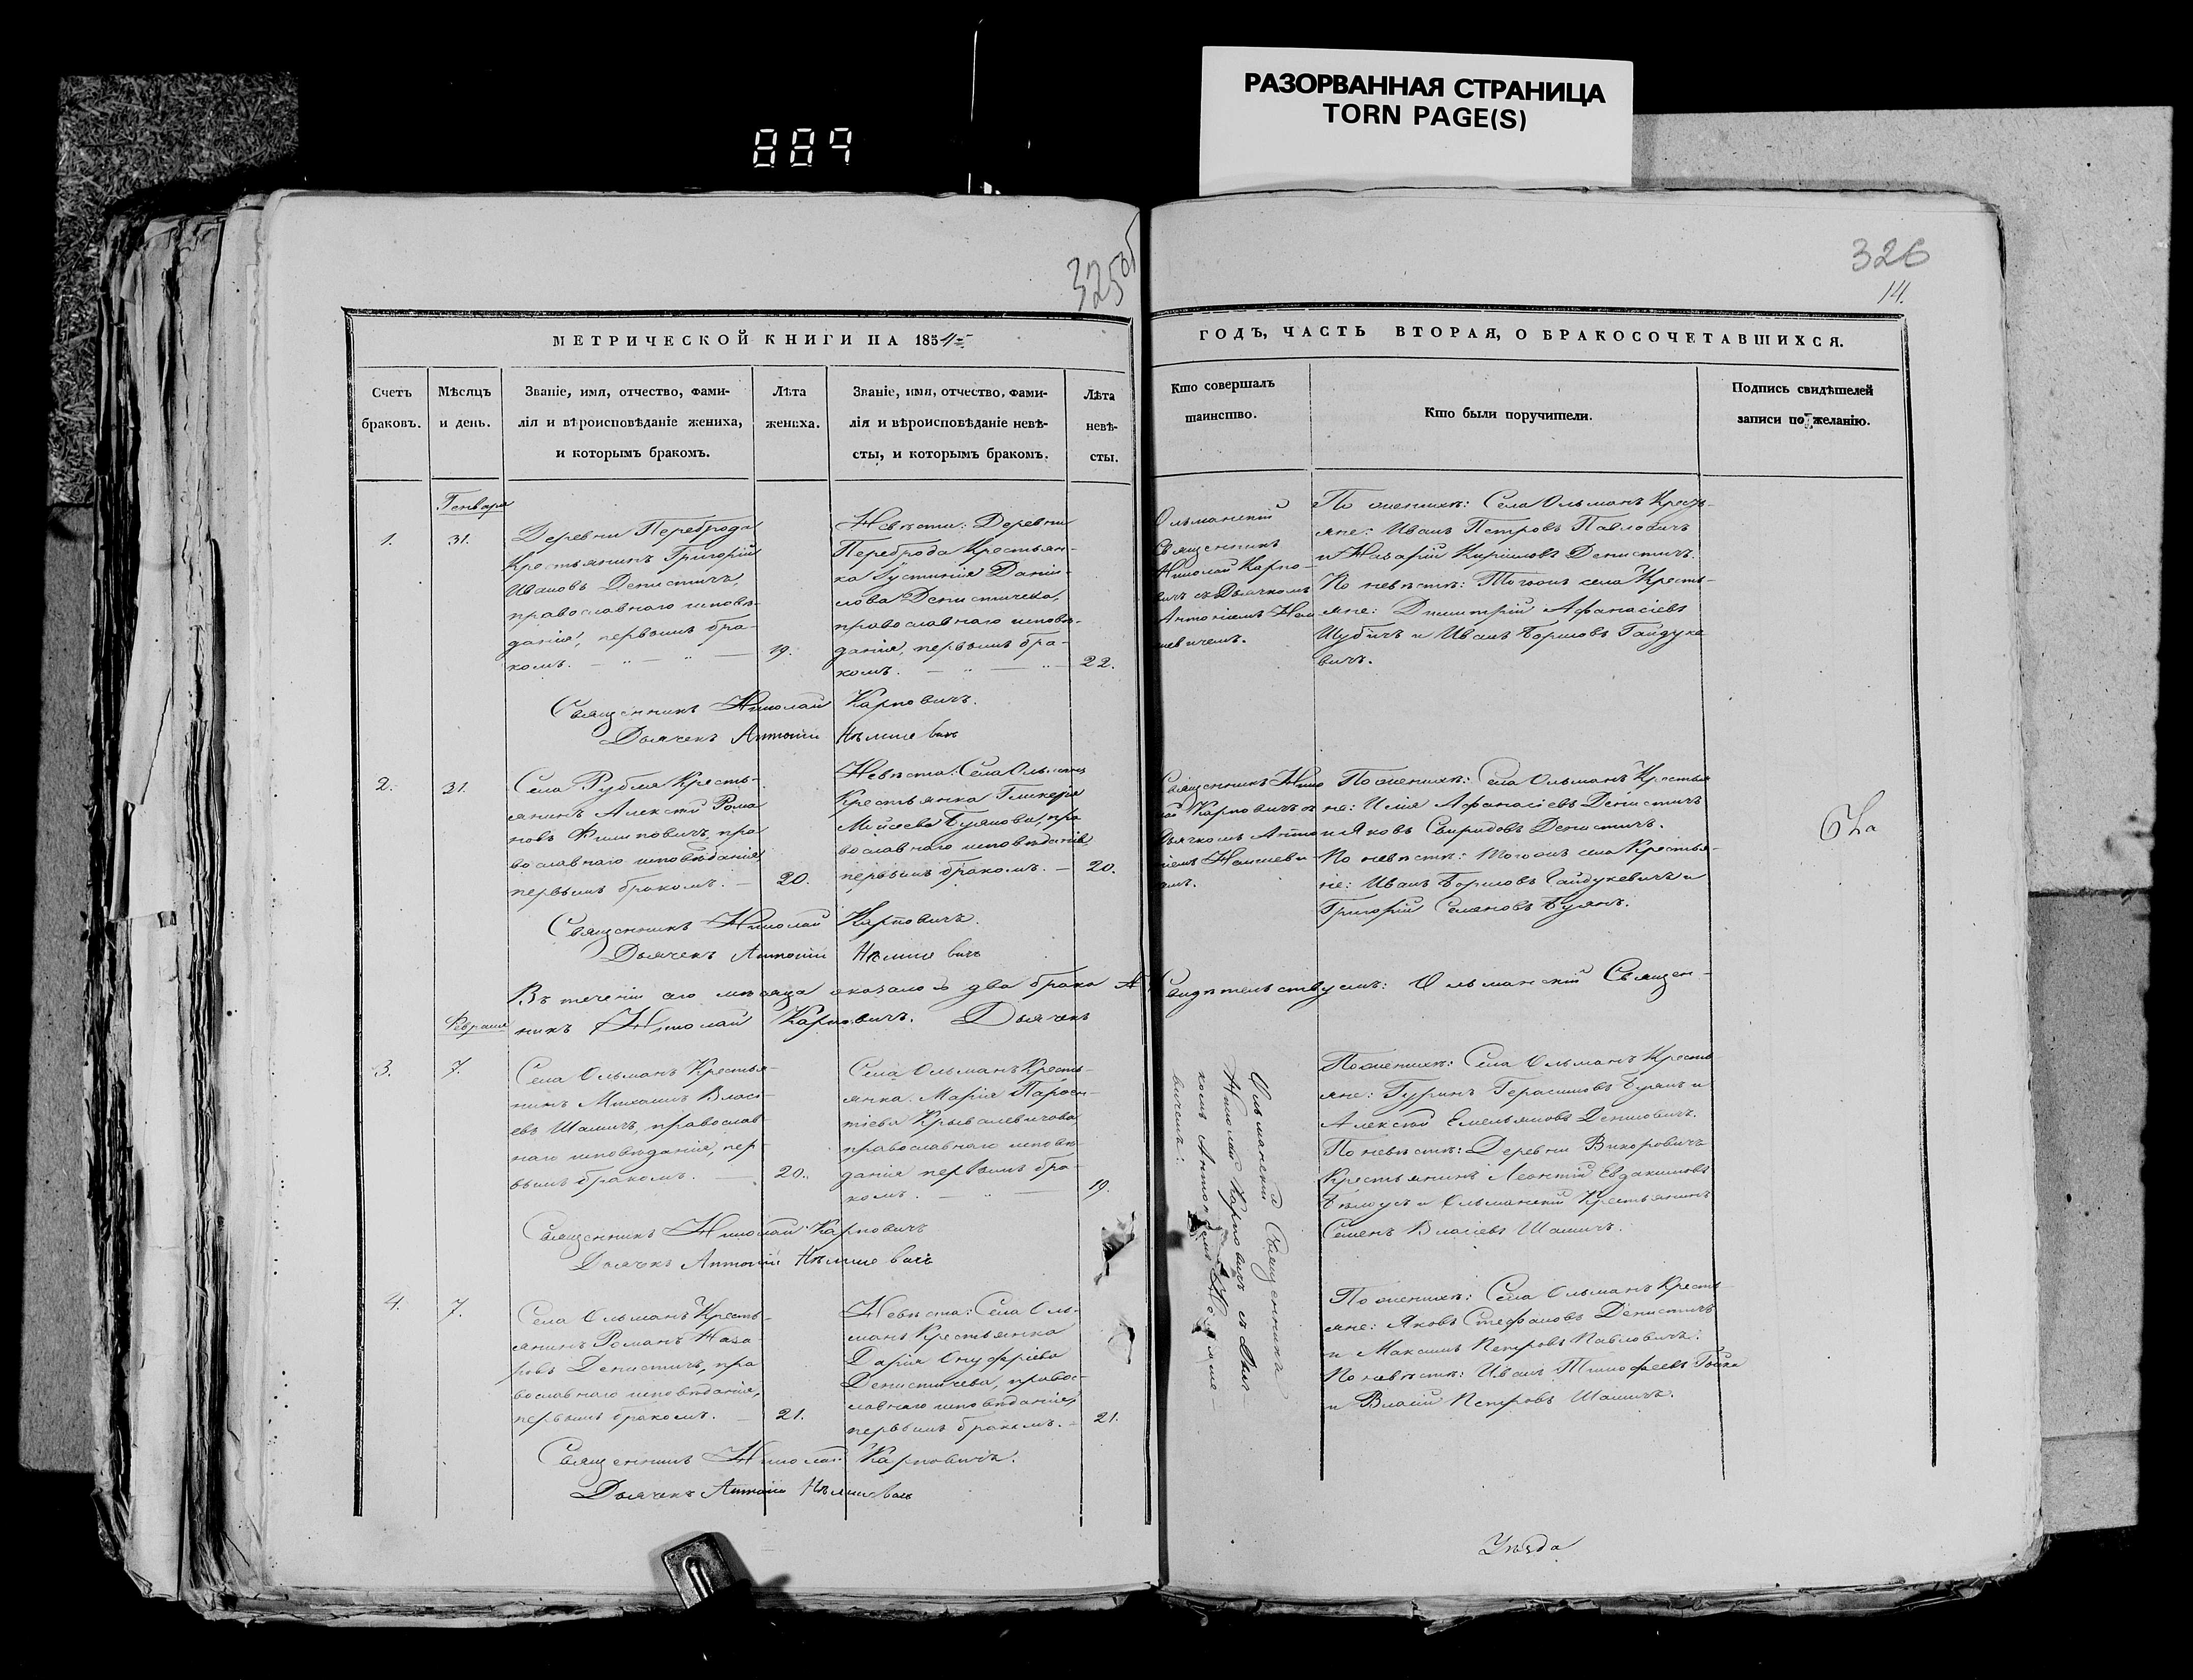 РАЗОРВАННАЯ СТРАНИЦА
TORN PAGE(S)
889
325об
326
14.
МЕТРИЧЕСКОЙ КНИГИ НА 1854
ГОДЪ, ЧАСТЬ ВТОРАЯ, О БРАКОСОЧЕТАВШИХСЯ.
Счетъ
браковъ.
Мѣсяцъ
и день.
Званіе, имя, отчество, фами-
лія и вѣроисповѣданіе жениха,
и которымъ бракомъ.
Лѣта
жениха.
Званіе, имя, отчество, фами-
лія и вѣроисповѣданіе невѣ-
сты, и которымъ бракомъ.
Лѣта
невѣ-
сты.
Кто совершалъ
таинство.
Кто были поручители.
Подпись свидѣтелей
записи по желанію.
Генваря
1.
31.
Деревни Переброда
Крестьянинъ Григорій
Ивановъ Денистичъ,
православнаго исповѣ-
данія, первымъ бра-
комъ.
19.
Невѣста: Деревни
Переброда Крестьян-
ка Іустинія Даніи-
лова Денистичева,
православнаго исповѣ-
данія, первымъ бра-
комъ.
22.
Ольманскій
Священникъ
Николай Карпо-
вичъ съ Дьячкомъ
Антоніемъ Нем
шевичемъ.
По женихѣ: Села Ольманъ Кресть-
яне: Иванъ Петровъ Павловичъ
и Назарій Кириловъ Денистичъ.
По невѣстѣ: Тогожъ села Кресть-
яне: Димитрій Афанасіевъ
Шубичъ и Иванъ Борисовъ Гайдуке
вичъ.
Священникъ Николай Карповичъ.
Дьячекъ Антоній Нѣмшевичъ
2.
31.
Села Рубля Кресть-
янинъ Алексѣй Рома
новъ Филиповичъ, пра
вославнаго исповѣданія,
первымъ бракомъ.
20.
Невѣста: Села Ольманъ
Крестьянка Гликерія
Мойсеева Буянова, пра
вославнаго исповѣданія,
первымъ бракомъ.
20.
Священникъ Нико
лай Карповичъ съ
Дьячкомъ Анто
ніемъ Немшеви
чемъ.
По женихѣ: Села Ольманъ Крестья
не: Илія Афанасіевъ Денистичъ
и Яковъ Свиридовъ Денистичъ.
По невѣстѣ: Тогожъ села Крестья-
не: Иванъ Борисовъ Гайдукевичъ и
Григорій Семеновъ Буянъ.
Священникъ Николай Карповичъ.
Дьячекъ Антоній Нѣмшевичъ
Въ теченіи сего мѣсяца оказалось два брака
Свидѣтельствуемъ: Ольманскій Священ-
никъ Николай Карповичъ. Дьячекъ
Февраля
3.
7.
Села Ольманъ Крестья-
нинъ Михаилъ Власі-
евъ Шашичъ, православ-
наго исповѣданія, пер-
вымъ бракомъ.
20.
Села Ольманъ Кресть-
янка Марія Парѳен-
тіева Крывалевичова,
православнаго исповѣ
данія первымъ бра-
комъ.
19.
Ольманскій Священникъ
Николай Карповичъ съ Дья-
комъ Антоніемъ Немше-
вичемъ.
По женихѣ: Села Ольманъ Кресть
яне: Гуринъ Герасимовъ Буянъ и
Алексѣй Емельяновъ Денисовичъ.
По невѣстѣ: Деревни Викоровичъ
Крестьянинъ Леонтій Евдакимовъ
Бѣлоусъ и Ольманскій Крестьянинъ
Семенъ Власіевъ Шашичъ.
Священникъ Николай Карповичъ
Дьячекъ Антоній Нѣмшевичъ
4.
7.
Села Ольманъ Кресть-
янинъ Романъ Наза-
ровъ Денистичъ, пра
вославнаго исповѣданія,
первымъ бракомъ.
21.
Невѣста: Села Оль-
манъ Крестьянка
Дарія Онуфріева
Денистичева, правос-
лавнаго исповѣданія,
первымъ бракомъ.
21.
По женихѣ: Села Ольманъ Кресть
яне: Яковъ Стефановъ Денистичъ
и Максимъ Петровъ Павловичъ.
По невѣстѣ: Иванъ Тимофеевъ
и Власій Петровъ Шашичъ.
Священникъ Николай Карповичъ.
Дьячекъ Антоній Нѣмшевичъ
Уѣзда